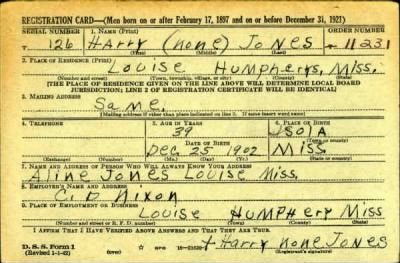 REGISTRATION CARD—(Men born on or after February 17, 1897 and on or before December 31, 1921)
SERIAL NUMBER 1. NAME (Print) ORDER NUMBER
T 126 Harry (none) Jones 11231
(First) (Middle) (Last)
2. PLACE OF RESIDENCE (Print)
Louise Humpherys, Miss.
(Number and street) (Town, township, village, or city) (County) (State)
[THE PLACE OF RESIDENCE GIVEN ON THE LINE ABOVE WILL DETERMINE LOCAL BOARD
JURISDICTION; LINE 2 OF REGISTRATION CERTIFICATE WILL BE IDENTICAL]
3. MAILING ADDRESS
Same.
[Mailing address if other than place indicated on line 2. If same insert word same]
4. TELEPHONE 5. AGE IN YEARS 6. PLACE OF BIRTH
39 ISOLA
DATE OF BIRTH (Town or county)
Dec 25 1902 Miss
(Exchange) (Number) (Mo.) (Day) (Yr.) (State or country)
7. NAME AND ADDRESS OF PERSON WHO WILL ALWAYS KNOW YOUR ADDRESS
Aline Jones Louise Miss.
8. EMPLOYER'S NAME AND ADDRESS
C. D. Nixon
9. PLACE OF EMPLOYMENT OR BUSINESS
Louise Humphery Miss
(Number and street or R. F. D. number) (Town) (County) (State)
I AFFIRM THAT I HAVE VERIFIED ABOVE ANSWERS AND THAT THEY ARE TRUE.
D. S. S. Form 1
(Revised 1-1-42) (over)
+ Harry none Jones
(Registrant's signature)